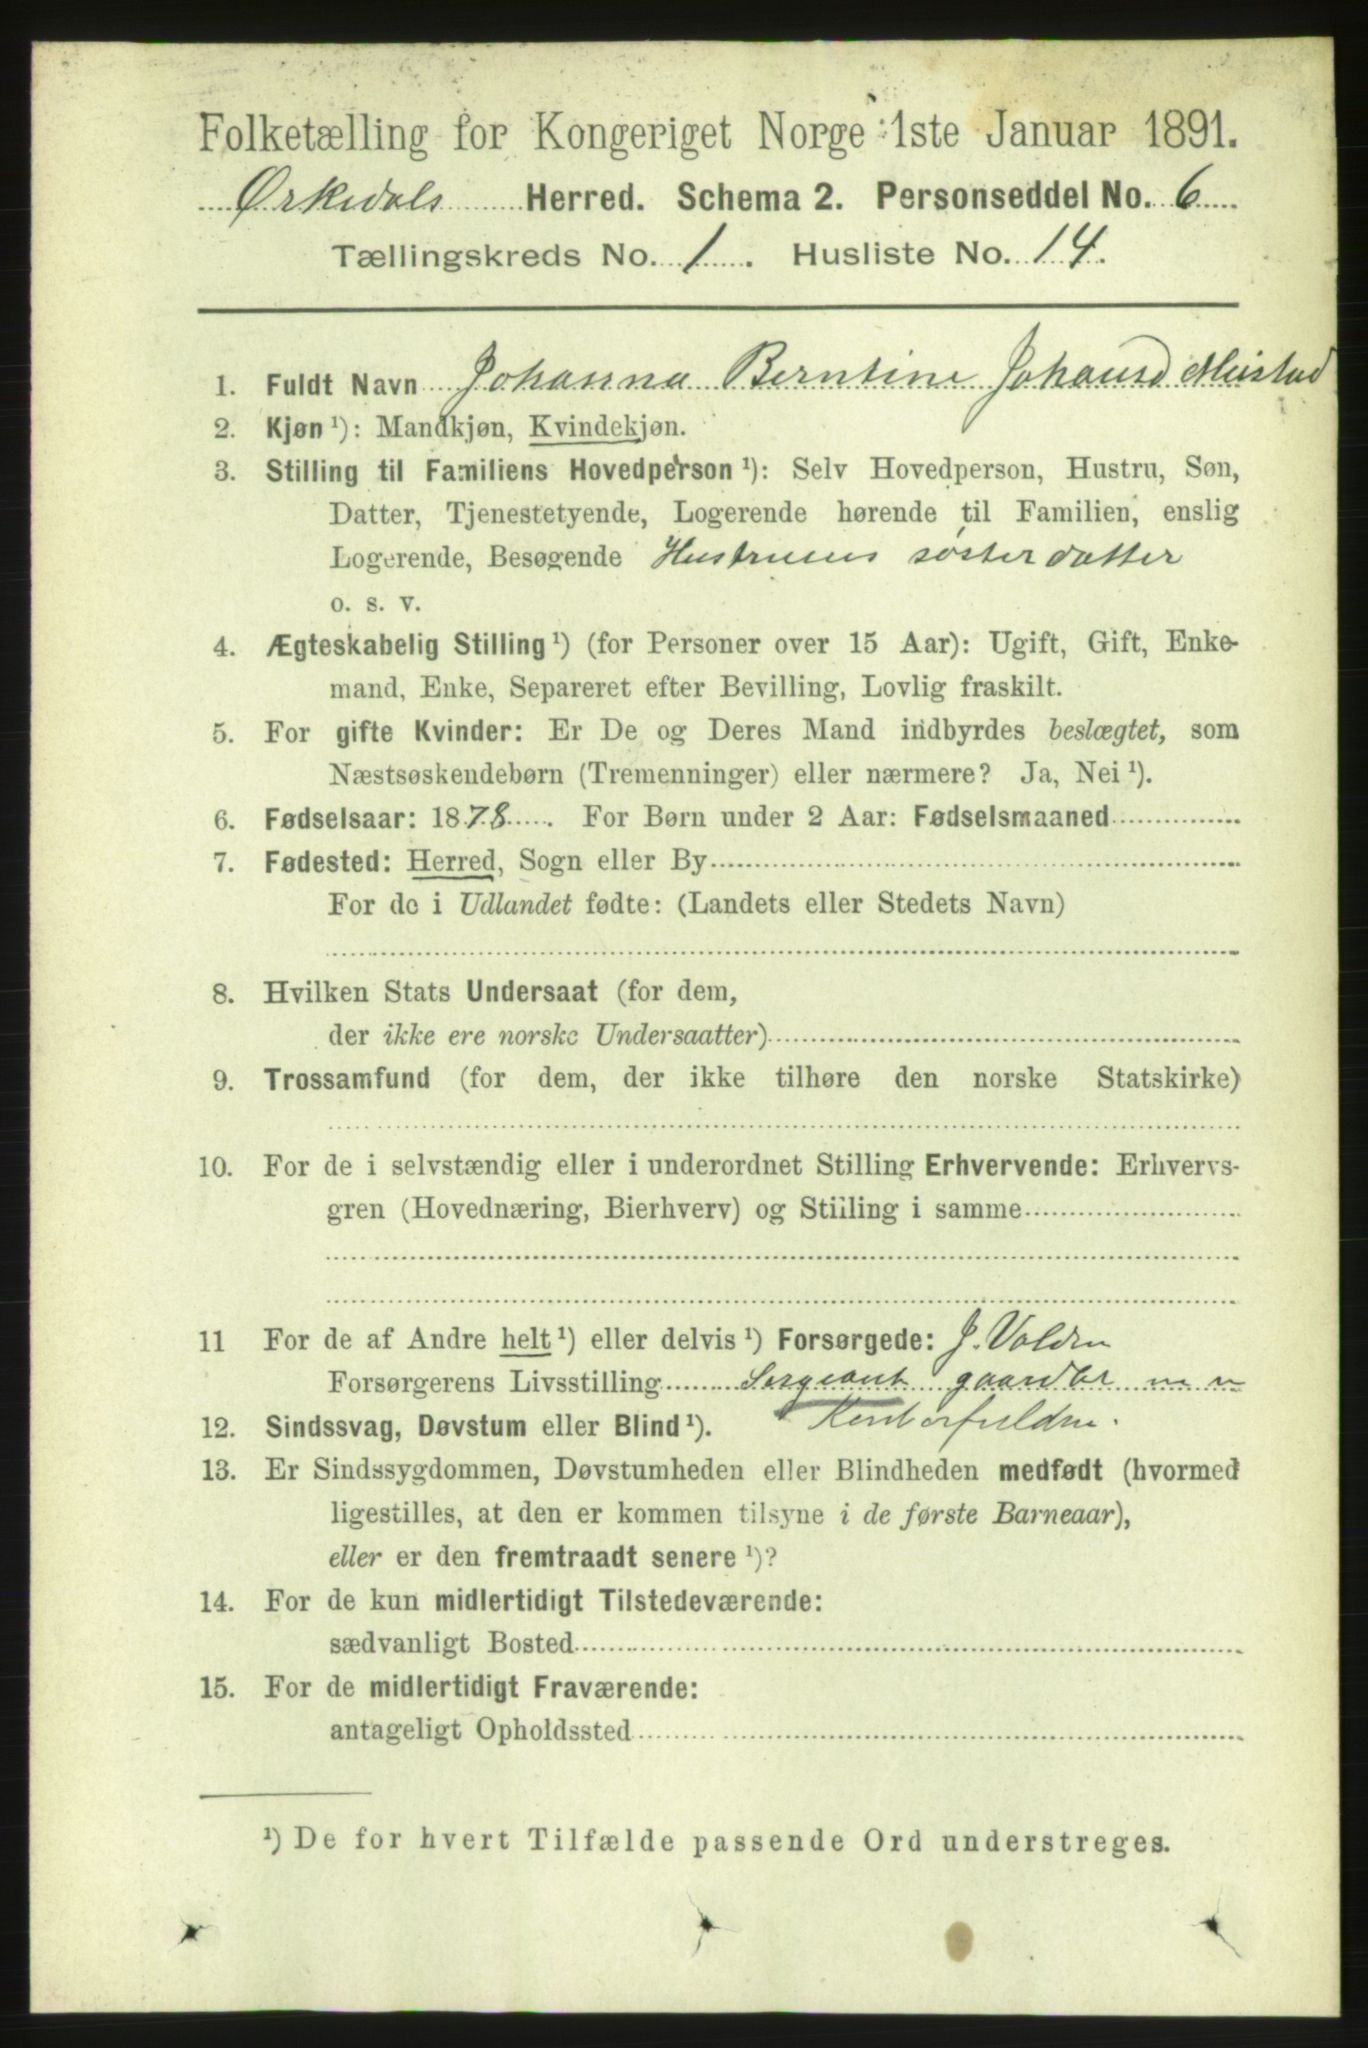 Folketælling for Kongeriget Norge 1ste Januar 1891.
Ørkedals Herred. Schema 2. Personseddel No. 6
Tællingskreds No. 1. Husliste No. 14.
1. Fuldt Navn Johanna Berntine Johansd Meistad
2. Kjøn ¹): Mandkjøn, Kvindekjøn.
3. Stilling til Familiens Hovedperson ¹): Selv Hovedperson, Hustru, Søn,
Datter, Tjenestetyende, Logerende hørende til Familien, enslig
Logerende, Besøgende Hustruens søsterdatter
o. s. v.
4. Ægteskabelig Stilling ¹) (for Personer over 15 Aar): Ugift, Gift, Enke-
mand, Enke, Separeret efter Bevilling, Lovlig fraskilt.
5. For gifte Kvinder: Er De og Deres Mand indbyrdes beslægtet, som
Næstsøskendebørn (Tremenninger) eller nærmere? Ja, Nei ¹).
6. Fødselsaar: 1878. For Børn under 2 Aar: Fødselsmaaned
7. Fødested: Herred, Sogn eller By
For de i Udlandet fødte: (Landets eller Stedets Navn)
8. Hvilken Stats Undersaat (for dem,
der ikke ere norske Undersaatter)
9. Trossamfund (for dem, der ikke tilhøre den norske Statskirke)
10. For de i selvstændig eller i underordnet Stilling Erhvervende: Erhvervs-
gren (Hovednæring, Bierhverv) og Stilling i samme
11 For de af Andre helt ¹) eller delvis ¹) Forsørgede: J. Volden
Forsørgerens Livsstilling Sergeant gaardbr
12. Sindssvag, Døvstum eller Blind ¹).
13. Er Sindssygdommen, Døvstumheden eller Blindheden medfødt (hvormed
ligestilles, at den er kommen tilsyne i de første Barneaar),
eller er den fremtraadt senere ¹)?
14. For de kun midlertidigt Tilstedeværende:
sædvanligt Bosted
15. For de midlertidigt Fraværende:
antageligt Opholdssted
¹) De for hvert Tilfælde passende Ord understreges.